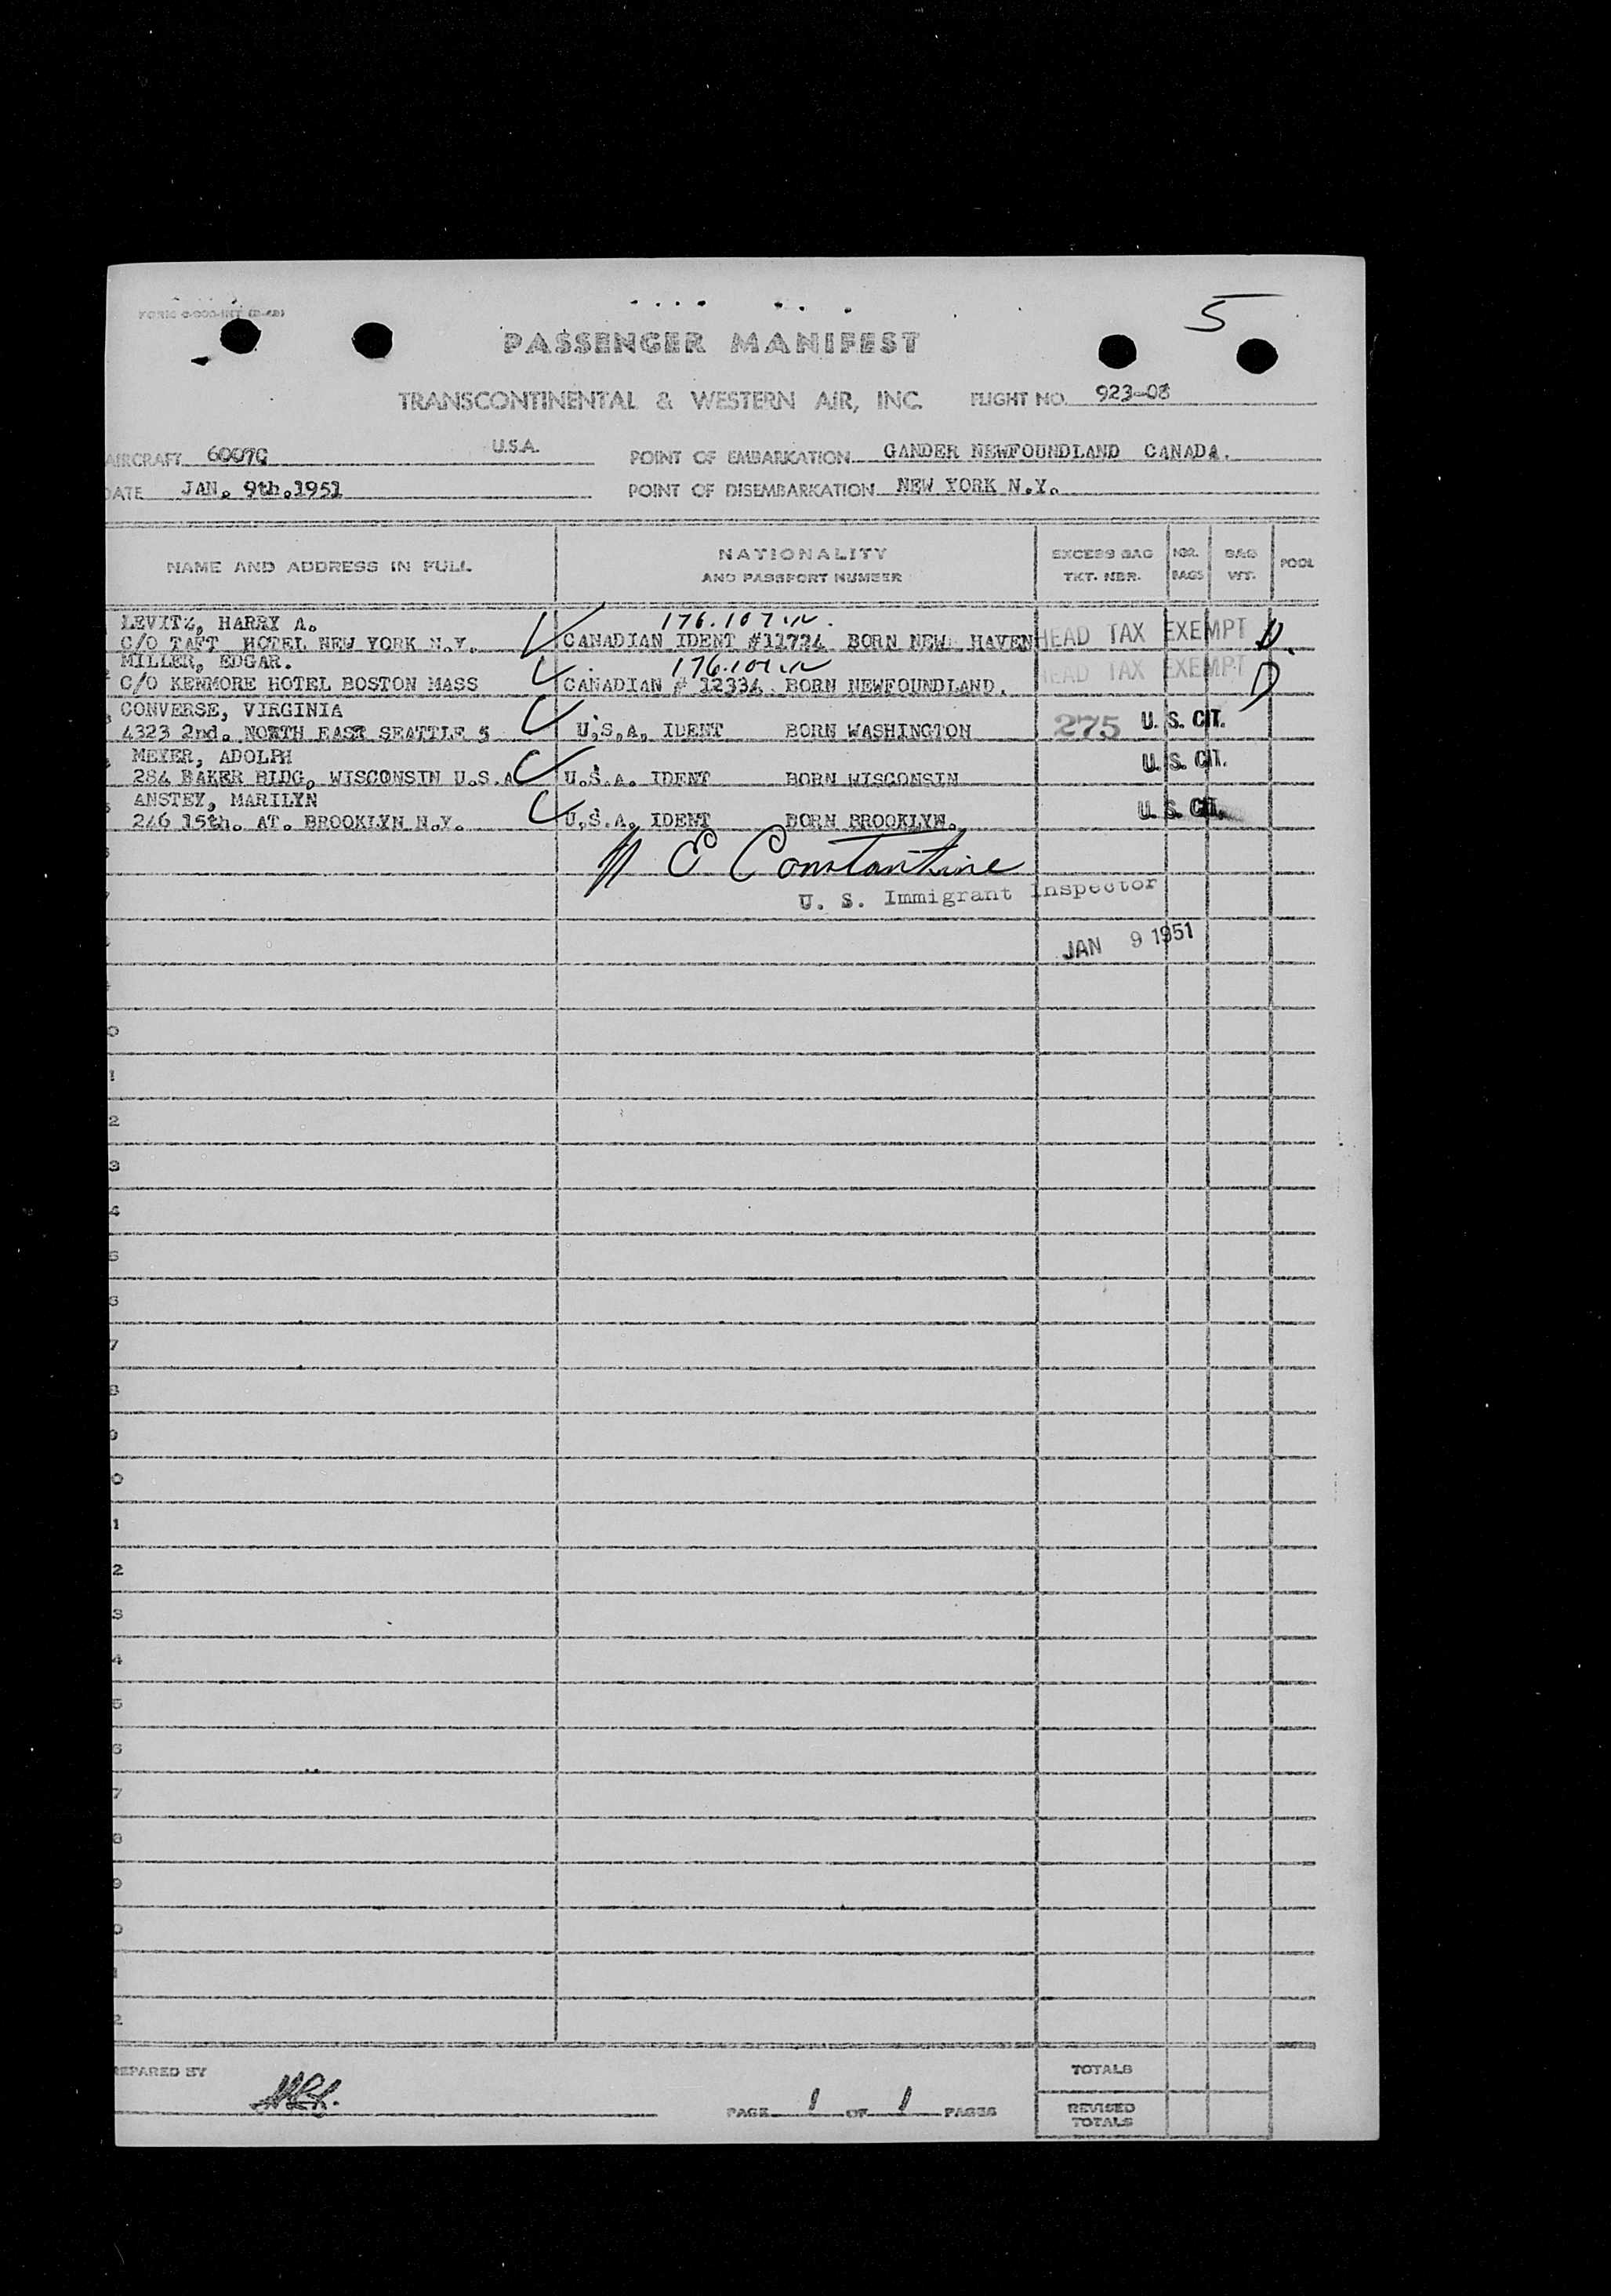 5
PASSENGER MANIFEST
TRANSCONTINENTAL & WESTERN AIR, INC. FLIGHT NO. 923-08
AIRCRAFT 6007C U.S.A. POINT OF EMBARKATION GANDER NEWFOUNDLAND CANADA.
DATE JAN. 9th.1951 POINT OF DISEMBARKATION NEW YORK N.Y.
NAME AND ADDRESS IN FULL NATIONALITY AND PASSPORT NUMBER EXCESS BAG TKT. NBR. NBR. BAGS BAG WT. POOL
LEVITZ, HARRY A. 176.107
C/O TAFT HOTEL NEW YORK N.Y. CANADIAN IDENT #11724 BORN NEW HAVEN HEAD TAX EXEMPT D.
MILLER, EDGAR. 176.107
C/O KENMORE HOTEL BOSTON MASS CANADIAN # 12334 BORN NEWFOUNDLAND. HEAD TAX EXEMPT D
CONVERSE, VIRGINIA
4323 2nd. NORTH EAST SEATTLE 5 U.S.A. IDENT BORN WASHINGTON 275 U. S. CIT.
MEYER, ADOLPH
284 BAKER BLDG, WISCONSIN U.S.A U.S.A. IDENT BORN WISCONSIN U. S. CIT.
ANSTEY, MARILYN
246 15th. AT. BROOKLYN N.Y. U.S.A. IDENT BORN BROOKLYN. U. S. CIT.
N E Constantine
U. S. Immigrant Inspector
JAN 9 1951
0
1
2
3
4
5
6
7
8
9
0
1
2
3
4
5
6
7
8
9
0
1
2
REPARED BY TOTALS
PAGE 1 OF 1 PAGES REVISED TOTALS